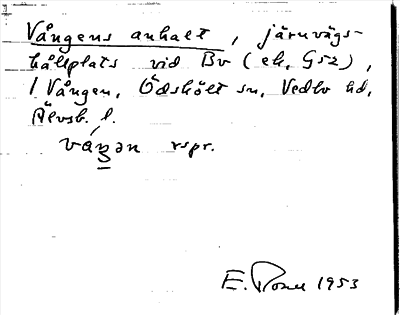 Vångens anhalt, järnvägs-
hållplats vid Bv (ek. G52),
1 Vången, Ödskölt sn, Vedbo hd,
Älvsb. l.
váŋən rspr.
E. 1953